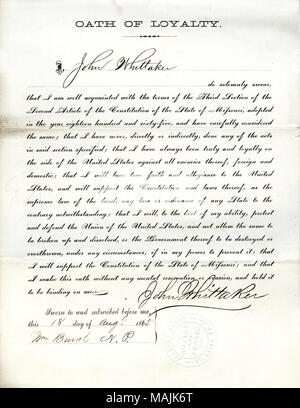 OATH OF LOYALTY.
I, John Whittaker
do solemnly swear,
that I am well acquainted with the terms of the Third Section of the
Second Article of the Constitution of the State of Missouri, adopted
in the year eighteen hundred and sixty-five, and have carefully considered
the same; that I have never, directly or indirectly, done any of the acts
in said section specified; that I have always been truly and loyally on
the side of the United States against all enemies thereof, foreign and
domestic; that I will bear true faith and allegiance to the United
States, and will support the Constitution and laws thereof, as the
supreme law of the land, any law or ordinance of any State to the
contrary notwithstanding; that I will to the best of my ability, protect
and defend the Union of the United States, and not allow the same to
be broken up and dissolved, or the Government thereof to be destroyed or
overthrown, under any circumstances, if in my power to prevent it; that
I will support the Constitution of the State of Missouri; and that
I make this oath without any mental reservation or evasion, and hold it
to be binding on me.
John Whittaker
Sworn to and subscribed before me,
this 18 day of Aug. 186
Wm N. P.
alamy
Image ID: MAJK6T
www.alamy.com